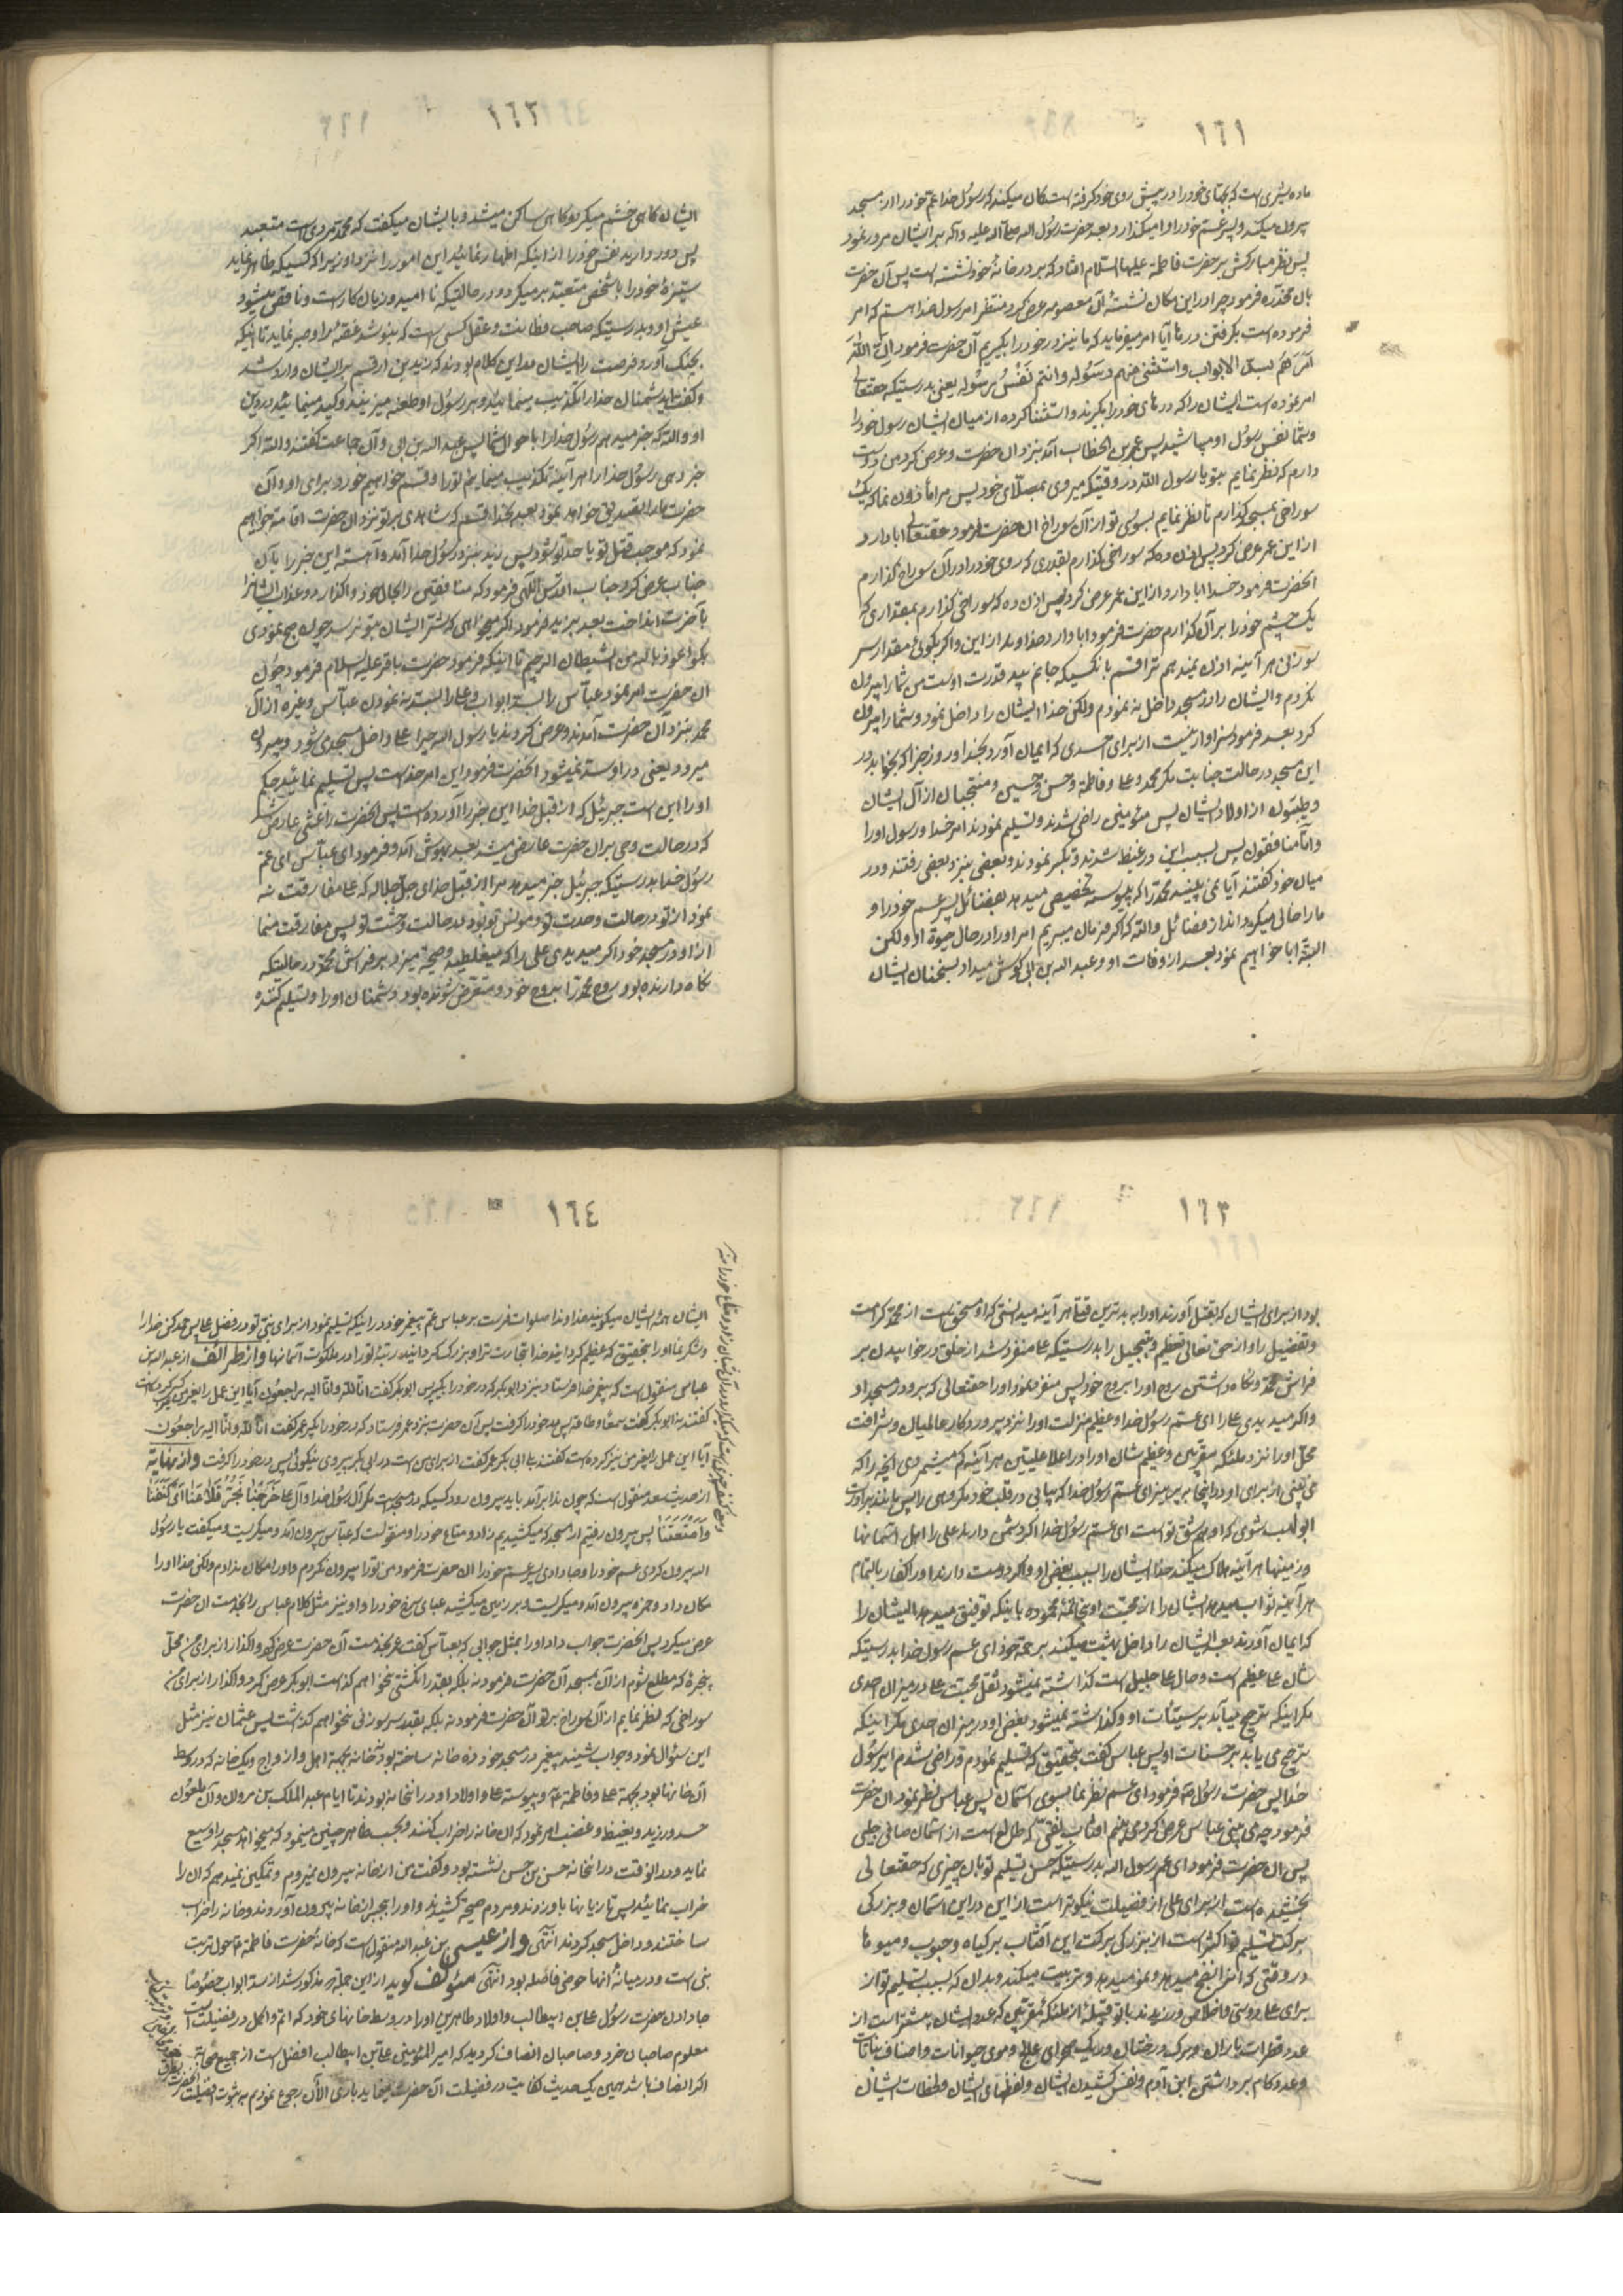 ١٦١
ماده شیری است که بچهای خود را در پیش روی خود گرفته است گمان میکند که رسول خدا عم خود را از مسجد
بیرون میکند و پسر عم خود را وامیگذارد و بعد حضرت رسول الله صلی الله علیه وآله بر ایشان مرور نمود
پس نظر مبارکش بر حضرت فاطمه علیها السلام افتاد که بر در خانه خود نشسته است پس آن حضرت
بآن مخدره فرمود چرا در این مکان نشسته آن معصومه عرض کرد منتظر امر رسول خدا هستم که امر
فرموده است بگرفتن درها آیا امر میفرماید که ما نیز در خود را بگیریم آن حضرت فرمود ان الله
امرهم بسد الابواب واستثنی منهم رسوله وانتم نفس رسوله یعنی بدرستیکه حقتعالی
امر نموده است ایشان را که درهای خود را بگیرند و استثنا کرده از میان ایشان رسول خود را
و شما نفس رسول او میباشید پس عمر بن الخطاب آمد بنزد آن حضرت و عرض کرد من دوست
دارم که نظر نمایم بتو یا رسول الله در وقتیکه میروی بمصلای خود پس مرا ماذون نما که یک
سوراخی بمسجد گذارم تا نظر نمایم بسوی تو از آن سوراخ آن حضرت فرمود حقتعالی ابا دارد
از این عمر عرض کرد پس اذن ده که سوراخی گذارم بقدری که روی خود را در آن سوراخ گذارم
آنحضرت فرمود خدا ابا دارد از این عمر عرض کرد پس اذن ده که سوراخی گذارم بمقداری که
یک چشم خود را بر آن گذارم حضرت فرمود ابا دارد خداوند از این و اگر بگوئی مقدار سر
سوزنی هر آینه اذن نمیدهم ترا قسم بآنکسیکه جانم بید قدرت اوست من شما را بیرون
نکردم و ایشان را در مسجد داخل نه نمودم ولکن خدا ایشان را داخل نمود و شما را بیرون
کرد بعد فرمود سزاوار نیست از برای احدی که ایمان آورد بخدا و روز جزا که بخوابد در
این مسجد در حالت جنابت مگر محمد و علی و فاطمه و حسن و حسین و منتجبان از آل ایشان
و طیبون از اولاد ایشان پس مؤمنین راضی شدند و تسلیم نمودند امر خدا و رسول او را
و اما منافقون پس بسبب این در غیظ شدند و تکبر نمودند و بعضی بنزد بعضی رفتند و در
میان خود گفتند آیا نمی بینید محمد را که پیوسته تخصیص میدهد بفضائل پسر عم خود را و
ما را خالی میگرداند از فضائل والله که اگر فرمان میبریم امر او را در حال حیوة او ولکن
البته ابا خواهیم نمود بعد از وفات او و عبد الله بن ابی گوش میداد بسخنان ایشان
١٦٢
ایشان گاهی خشم میکرد و گاهی ساکن میشد و بایشان میگفت که محمد مردی است متعبد
پس دور دارید نفس خود را از اینکه اظهار نمائید این امور را نزد او زیرا که کسیکه ظاهر نماید
ستیزه خود را با شخصی متعبد بر میگردد در حالتیکه ناامید و زیان کار است و ناقص میشود
عیش او و بدرستیکه صاحب فطانت و عقل کسی است که بنوشد غصه را و صبر نماید تا اینکه
بچنگ آورد فرصت را ایشان در این کلام بودند که زید بن ارقم بر ایشان وارد شد
و گفت ای دشمنان خدا را تکذیب مینمائید و بر رسول او طعنه میزنید و کید مینمائید در دین
او والله که خبر میدهم رسول خدا را باحوال شما پس عبد الله بن ابی و آن جماعت گفتند والله اگر
خبر دهی رسول خدا را هر آینه تکذیب مینمایم تو را و قسم خواهیم خورد برای او و آن
حضرت ما را تصدیق خواهد نمود بعد بخدا قسم که شاهدی بر تو نزد آن حضرت اقامه خواهیم
نمود که موجب قتل تو یا حد تو شود پس زید بنزد رسول خدا آمد و آهسته این خبر را بآن
جناب عرض کرد جناب اقدس الهی فرمود که منافقین را بحال خود واگذارد و عذاب ایشانرا
بآخرت انداخت بعد بزید فرمود اگر میخواهی که شر ایشان بتو نرسد چون صبح نمودی
بگو اعوذ بالله من الشیطان الرجیم تا اینکه فرمود حضرت باقر علیه السلام فرمود چون
آن حضرت امر نمود عباس را بسد ابواب و علی را بسد نه نمودن عباس و غیره از آل
محمد بنزد آن حضرت آمدند و عرض کردند یا رسول الله چرا علی داخل مسجدی شود و بیرون
میرود یعنی در او سد نمیشود آنحضرت فرمود این امر خداست پس تسلیم نمائید حکم
او را این است جبرئیل که از قبل خدا این خبر را آورده است پس آنحضرت را غشی عارض شد
که در حالت وحی بر آن حضرت عارض میشد بعد بهوش آمد و فرمود ای عباس ای عم
رسول خدا بدرستیکه جبرئیل خبر میدهد مرا از قبل خدای جل جلاله که علی مفارقت نه
نمود از تو در حالت وحدت تو و مونس تو بود در حالت وحشت تو پس مفارقت منما
از او در مسجد خود اگر میدیدی علی را که میغلطید و صیحه میزد بر فراش محمد در حالتیکه
نگاه دارنده بود روح محمد را بروح خود و متعرض شونده بود دشمنان او را و تسلیم کننده
١٦٣
بود از برای ایشان که بقتل آورند او را به بدترین قتلها هر آینه میدانستی که او مستحق است از محمد کرامت
و تفضیل را و از حق تعالی تعظیم و تبجیل را بدرستیکه علی منفرد شد از خلق در خوابیدن بر
فراش محمد و نگاه داشتن روح او را بروح خود پس منفرد نمود او را حقتعالی که برود در مسجد او
و اگر میدیدی علی را ای عم رسول خدا و عظیم منزلت او را نزد پروردگار عالمیان و شرافت
محل او را نزد ملئکه مقربین و عظیم شان او را در اعلا علیین هر آینه کم میشمردی آنچه را که
می بینی از برای او در اینجا بپرهیز ای عم رسول خدا که بیابی در قلب خود مکروهی را پس مانند برادرت
ابو لهب شوی که او هم شق تو است ای عم رسول خدا اگر دشمنی دارند علی را اهل آسمانها
و زمینها هر آینه هلاک میکند خدا ایشان را بسبب بغض او و اگر دوست دارند او را کفار بالتمام
هر آینه ثواب میدهد ایشان را از محبت او بخاتمه محموده باینکه توفیق میدهد ایشان را
که ایمان آورند بعد ایشان را داخل بهشت میکند برحمة خود ای عم رسول خدا بدرستیکه
شان علی عظیم است و حال علی جلیل است گذاشته نمیشود ثقل محبت علی در میزان احدی
مگر اینکه ترجیح میابد بر سیئات او و گذاشته نمیشود بغض او در میزان احدی مگر اینکه
ترجیح می یابد بر حسنات او پس عباس گفت بتحقیق که تسلیم نمودم و راضی شدم ای رسول
خدا پس حضرت رسول ص فرمود ای عم نظر نما بسوی آسمان پس عباس نظر نمود آن حضرت
فرمود چه می بینی عباس عرض کرد می بینم آفتاب نقی که طالع است از آسمان صافی جلی
پس آن حضرت فرمود ای عم رسول الله بدرستیکه حسن تسلیم تو بآن چیزی که حقتعالی
بخشیده است از برای علی از فضیلت نیکوتر است از این در این آسمان و بزرگی
برکت تسلیم تو اکثر است از بزرگی برکت این آفتاب بر گیاه و حبوب و میوها
در وقتی که آنرا نضج میدهد و نمو میدهد و تربیت میکند و بدان که بسبب تسلیم تو از
برای علی دوستی و اخلاص ورزیدند با تو قبیله از ملئکه مقربین که عدد ایشان بیشتر است از
عدد قطرات باران و برگ درختان و ریگ صحرای عالج و موی حیوانات و اصناف نباتات
و عدد گام برداشتن ابن آدم و نفس کشیدن ایشان و لفظهای ایشان و لحظات ایشان
١٦٤
ایشان همه ایشان میگویند خداوندا صلوات فرست بر عباس عم پیغمبر خود در اینکه تسلیم نمود از برای نبی تو در فضل علی پس حمد کن خدا را
و شکر نما او را بتحقیق که عظیم گردانید خدا تجارت ترا و بزرگ گردانید رتبه تو را در ملکوت آسمانها و از طرائف از عبد الله بن
عباس منقول است که پیغمبر خدا فرستاد بنزد ابوبکر که در خود را بگیر پس ابوبکر گفت انا لله وانا الیه راجعون آیا این عمل را بغیر من
گفتند نه ابوبکر گفت سمعا وطاعة پس در خود را گرفت پس آن حضرت بنزد عمر فرستاد که در خود را بگیر عمر گفت انا لله وانا الیه راجعون
آیا این عمل را بغیر من نیز کرده است گفتند بلی ابی بکر عمر گفت از برای من است در ابی بکر پیروی نیکوئی پس در خود را گرفت و از نهایه
از حدیث سعد منقول است که چون ندا برآمد باید بیرون رود کسیکه در مسجد است مگر آل رسول خدا و آل علی خرجنا نجر قلاعنا ای کنفنا
وامتعتنا پس بیرون رفتیم از مسجد که میکشیدیم زاد و متاع خود را و منقولست که عباس بیرون آمد و میگریست و میگفت یا رسول
الله بیرون کردی عم خود را و جا دادی پسر عم خود را آن حضرت فرمود من تو را بیرون نکردم و او را مکان ندادم ولکن خدا او را
مکان داد و حمزه بیرون آمد و میگریست و بر زمین میکشید عبای سرخ خود را و او نیز مثل کلام عباس را بخدمت آن حضرت
عرض میکرد پس آنحضرت جواب داد او را بمثل جوابی که بعباس گفت عمر بخدمت آن حضرت عرض کرد واگذار از برای من محل
پنجره که مطلع شوم از آن بمسجد آن حضرت فرمود نه بلکه بقدر انگشتی نخواهم گذاشت ابوبکر عرض کرد واگذار از برای من
سوراخی که نظر نمایم از آن سوراخ بر تو آن حضرت فرمود نه بلکه بقدر سر سوزنی نخواهم گذاشت پس عثمان نیز مثل
این سئوال نمود و جواب شنید پیغمبر در مسجد خود ده خانه ساخته بود نه خانه بجهة اهل و ازواج و یکخانه که در وسط
آن خانها بود بجهة علی و فاطمه ع و پیوسته علی و اولاد او در آنخانه بودند تا ایام عبد الملک بن مروان و آن ملعون
حسد ورزید و بغیظ و غضب امر نمود که آن خانه را خراب کنند و بحسب ظاهر چنین مینمود که میخواهد مسجد را وسیع
نماید و در آنوقت در آنخانه حسن بن حسن نشسته بود و گفت من از خانه بیرون نمیروم و تمکین نمیدهم که آن را
خراب نمائید پس تازیانها باو زدند و مردم صیحه کشیدند و او را بجبر از خانه بیرون آوردند و خانه را خراب
ساختند و داخل مسجد کردند انتهی و از عیسی بن عبد الله منقول است که خانه حضرت فاطمه ع حول تربت
نبی است و در میانه آنها حوضی فاصله بود انتهی مؤلف گوید از این جمله مذکور شد از سد ابواب خصوصا
جا دادن حضرت رسول علی بن ابیطالب و اولاد طاهرین او را در وسط خانهای خود که اتم و اکمل در فضیلت است
معلوم صاحبان خرد و صاحبان انصاف گردید که امیر المؤمنین علی بن ابیطالب افضل است از جمیع صحابه
اگر انصاف باشد همین یک حدیث کفایت در فضیلت آن حضرت مینماید باری الآن رجوع نمودیم به ثبوت افضلیت آنحضرت